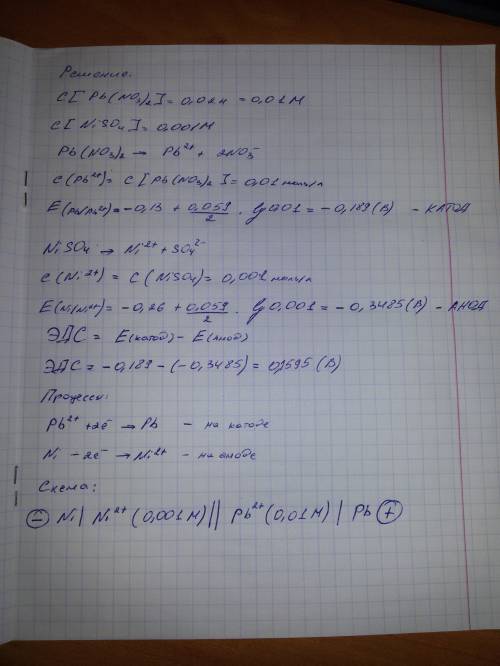 Решение:
C[Pb(NO₃)₂] = 0,02н = 0,01М
C[NiSO₄] = 0,001М
Pb(NO₃)₂ → Pb²⁺ + 2NO₃⁻
C(Pb²⁺) = C[Pb(NO₃)₂] = 0,01 моль/л
E(Pb/Pb²⁺) = -0,13 + 0,059/2 · lg 0,01 = -0,189 (В) - КАТОД
NiSO₄ → Ni²⁺ + SO₄²⁻
C(Ni²⁺) = C(NiSO₄) = 0,001 моль/л
E(Ni/Ni²⁺) = -0,26 + 0,059/2 · lg 0,001 = -0,3485 (В) - АНОД
ЭДС = E(катод) - E(анод)
ЭДС = -0,189 - (-0,3485) = 0,1595 (В)
Процессы:
Pb²⁺ + 2e⁻ → Pb - на катоде
Ni - 2e⁻ → Ni²⁺ - на аноде
Схема:
(-) Ni | Ni²⁺ (0,001М) || Pb²⁺ (0,01М) | Pb (+)